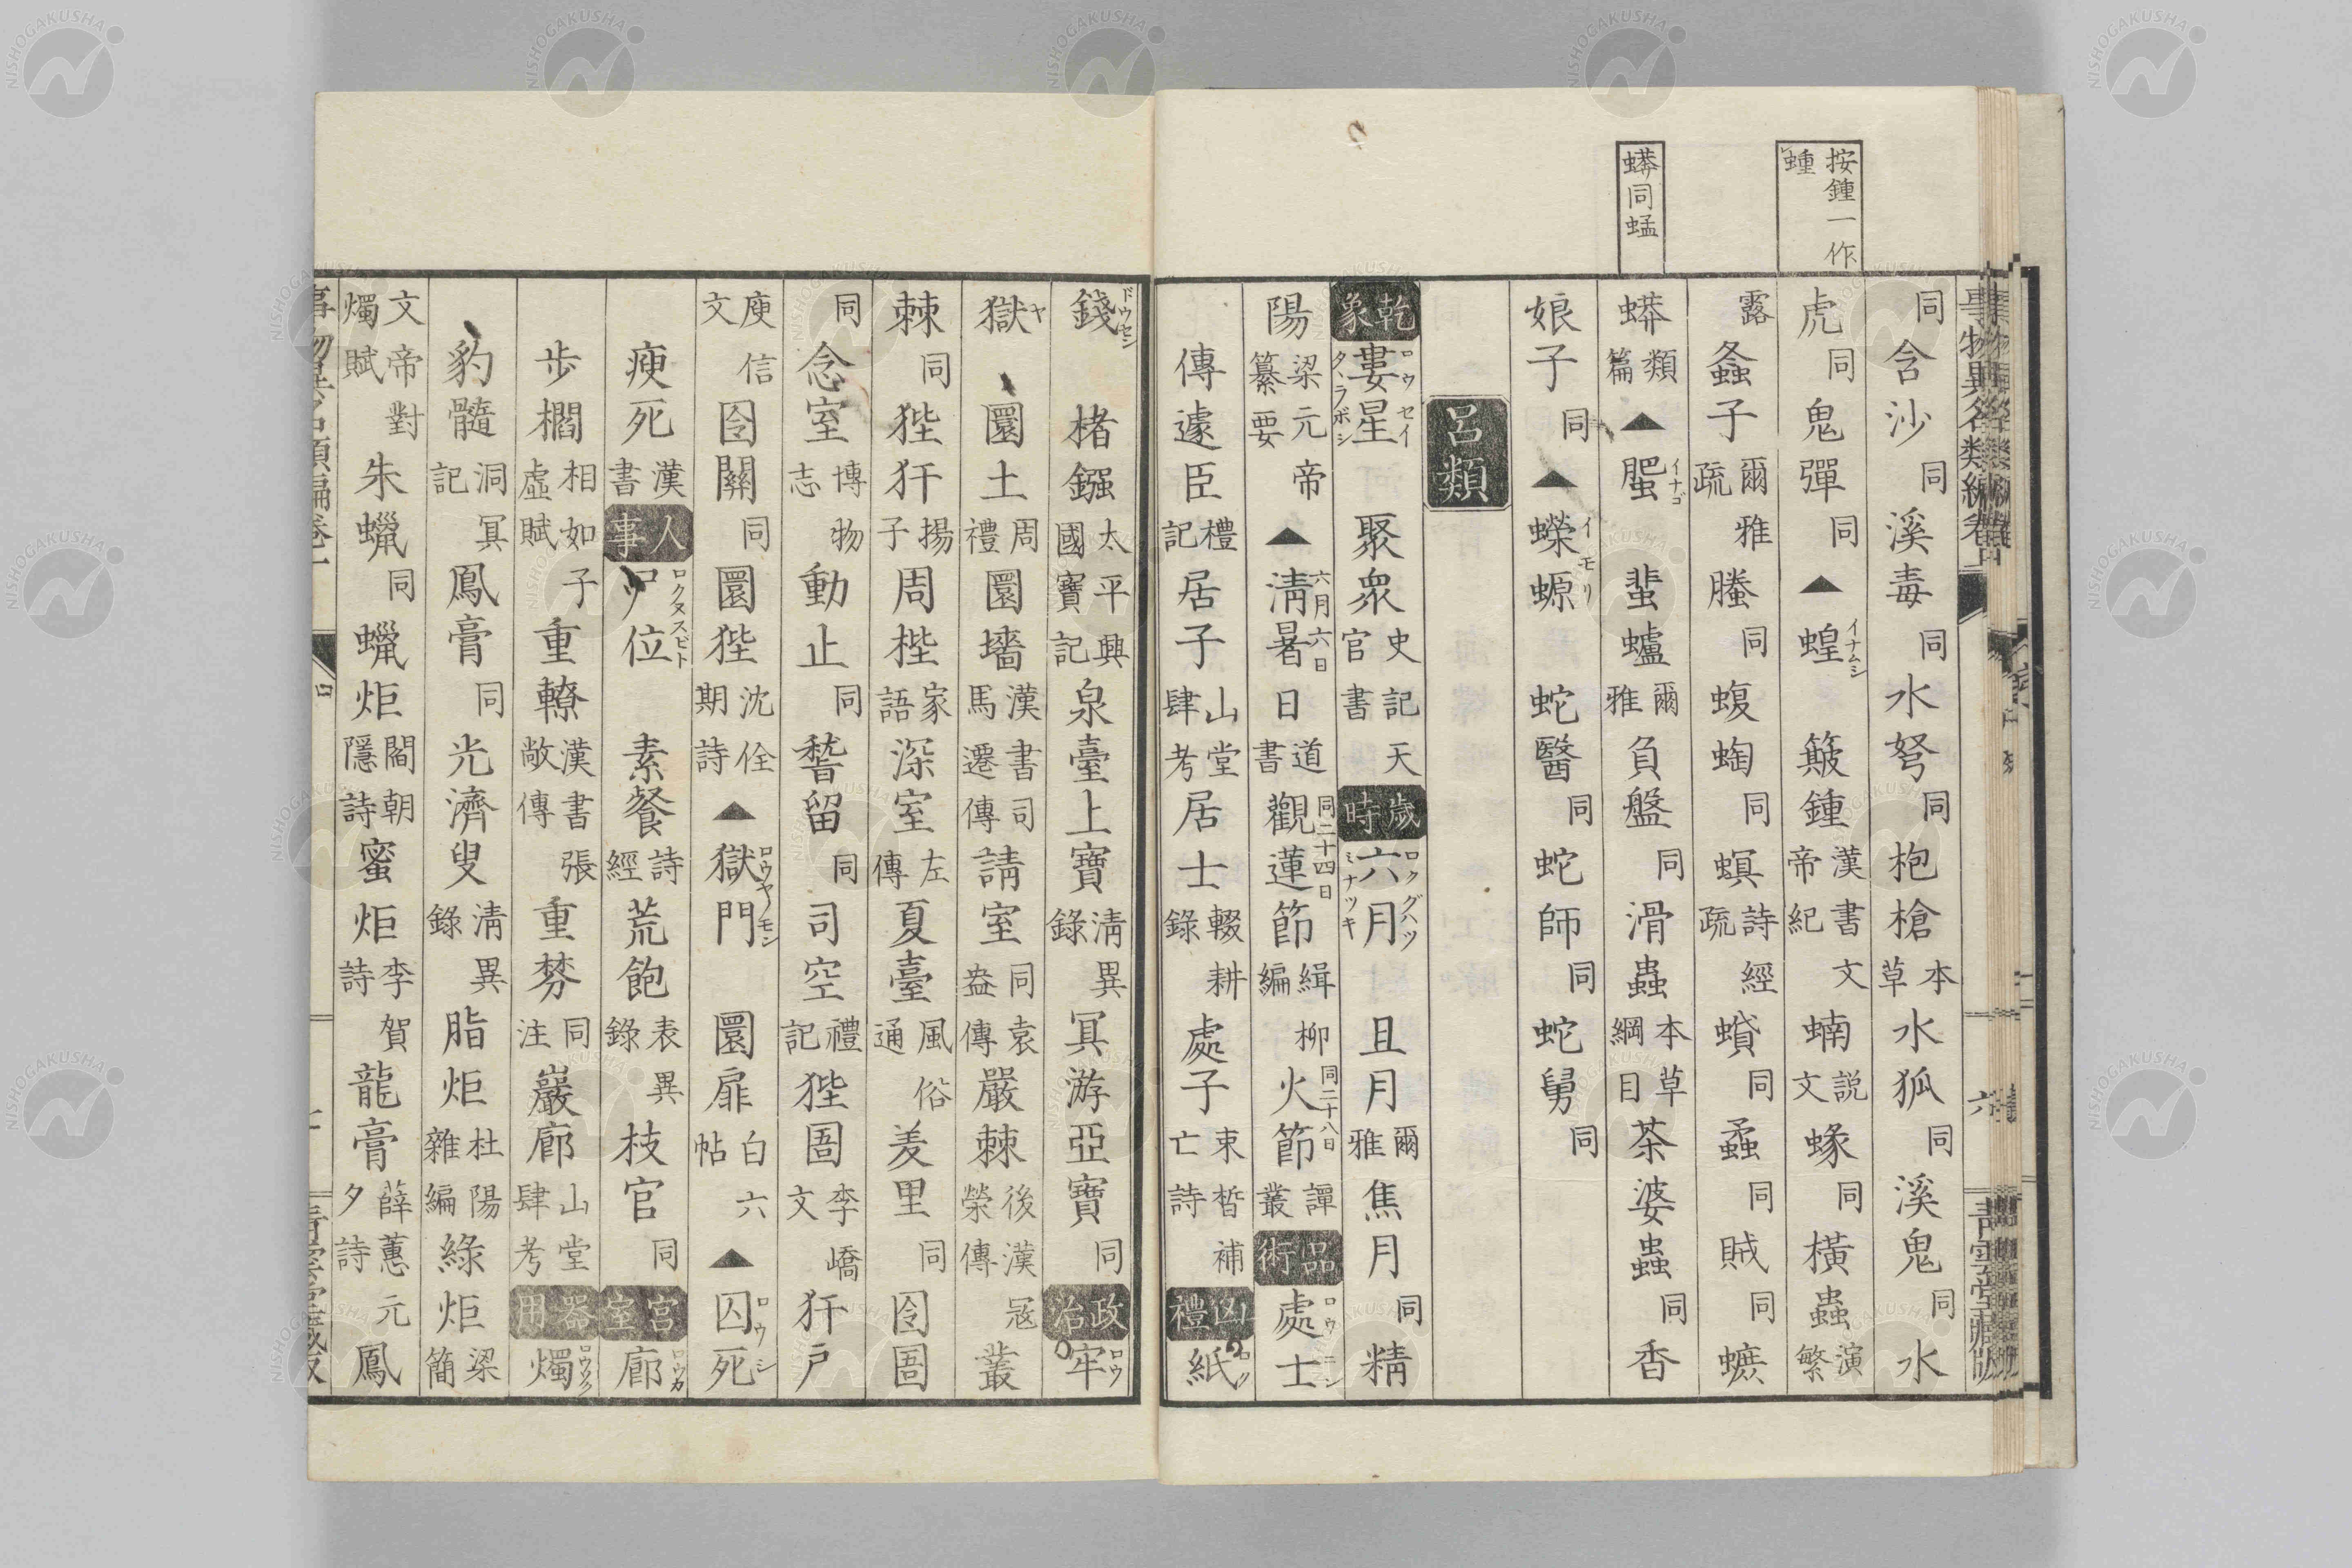 按鍾一作
蝩
蟒同蜢
同含沙同溪毒同水弩同枹槍本草水狐同溪鬼同水
虎同鬼彈同▲蝗イナムシ簸鍾漢書文帝紀蝻説文蝝同橫蟲演繁
露螽子爾雅疏螣同蝮蜪同螟詩經疏蟘同蟊同賊同蟅
蟒類篇▲䖬イナゴ蜚蠦爾雅負盤同滑蟲本草綱目茶婆蟲同香
娘子同▲蠑螈イモリ蛇醫同蛇師同蛇舅同
呂類
乾象婁星ロウセイタヽラボシ聚衆史記天官書歲時六月ロクグハツミナツキ且月爾雅焦月同精
陽梁元帝纂要▲淸暑六月六日日道書觀蓮節同二十四日緝柳編火節同二十八日譚叢品術處士ロウニン
傳遽臣禮記居子山堂肆考居士輟耕錄處子束皙補亡詩凶禮紙ロク
錢ドウセン楮鏹太平興國寶記泉臺上寶淸異錄冥游亞寶同政治牢ロウ
獄ヤ圜土周禮圜墻漢書司馬遷傳請室同袁盎傳嚴棘後漢寇榮傳叢
棘同狴犴揚子周桎家語深室左傳夏臺風俗通羑里同囹圄
同念室博物志動止同嵇留同司空禮記狴圄李嶠文犴戶
庾信文囹關同圜狴沈佺期詩▲獄門ロウヤノモン圜扉白六帖▲囚死ロウシ
瘐死漢書人事尸位ロクヌスビト素餐詩經荒飽表異錄枝官同宮室廊ロウカ
步櫩相如子虛賦重轑漢書張敞傳重棼同注巖廊山堂肆考器用燭ロウソク
豹髓洞冥記鳳膏同光濟叟淸異錄脂炬杜陽雜編綠炬梁簡
文帝對燭賦朱蠟同蠟炬閻朝隱詩蜜炬李賀詩龍膏薛蕙元夕詩鳳